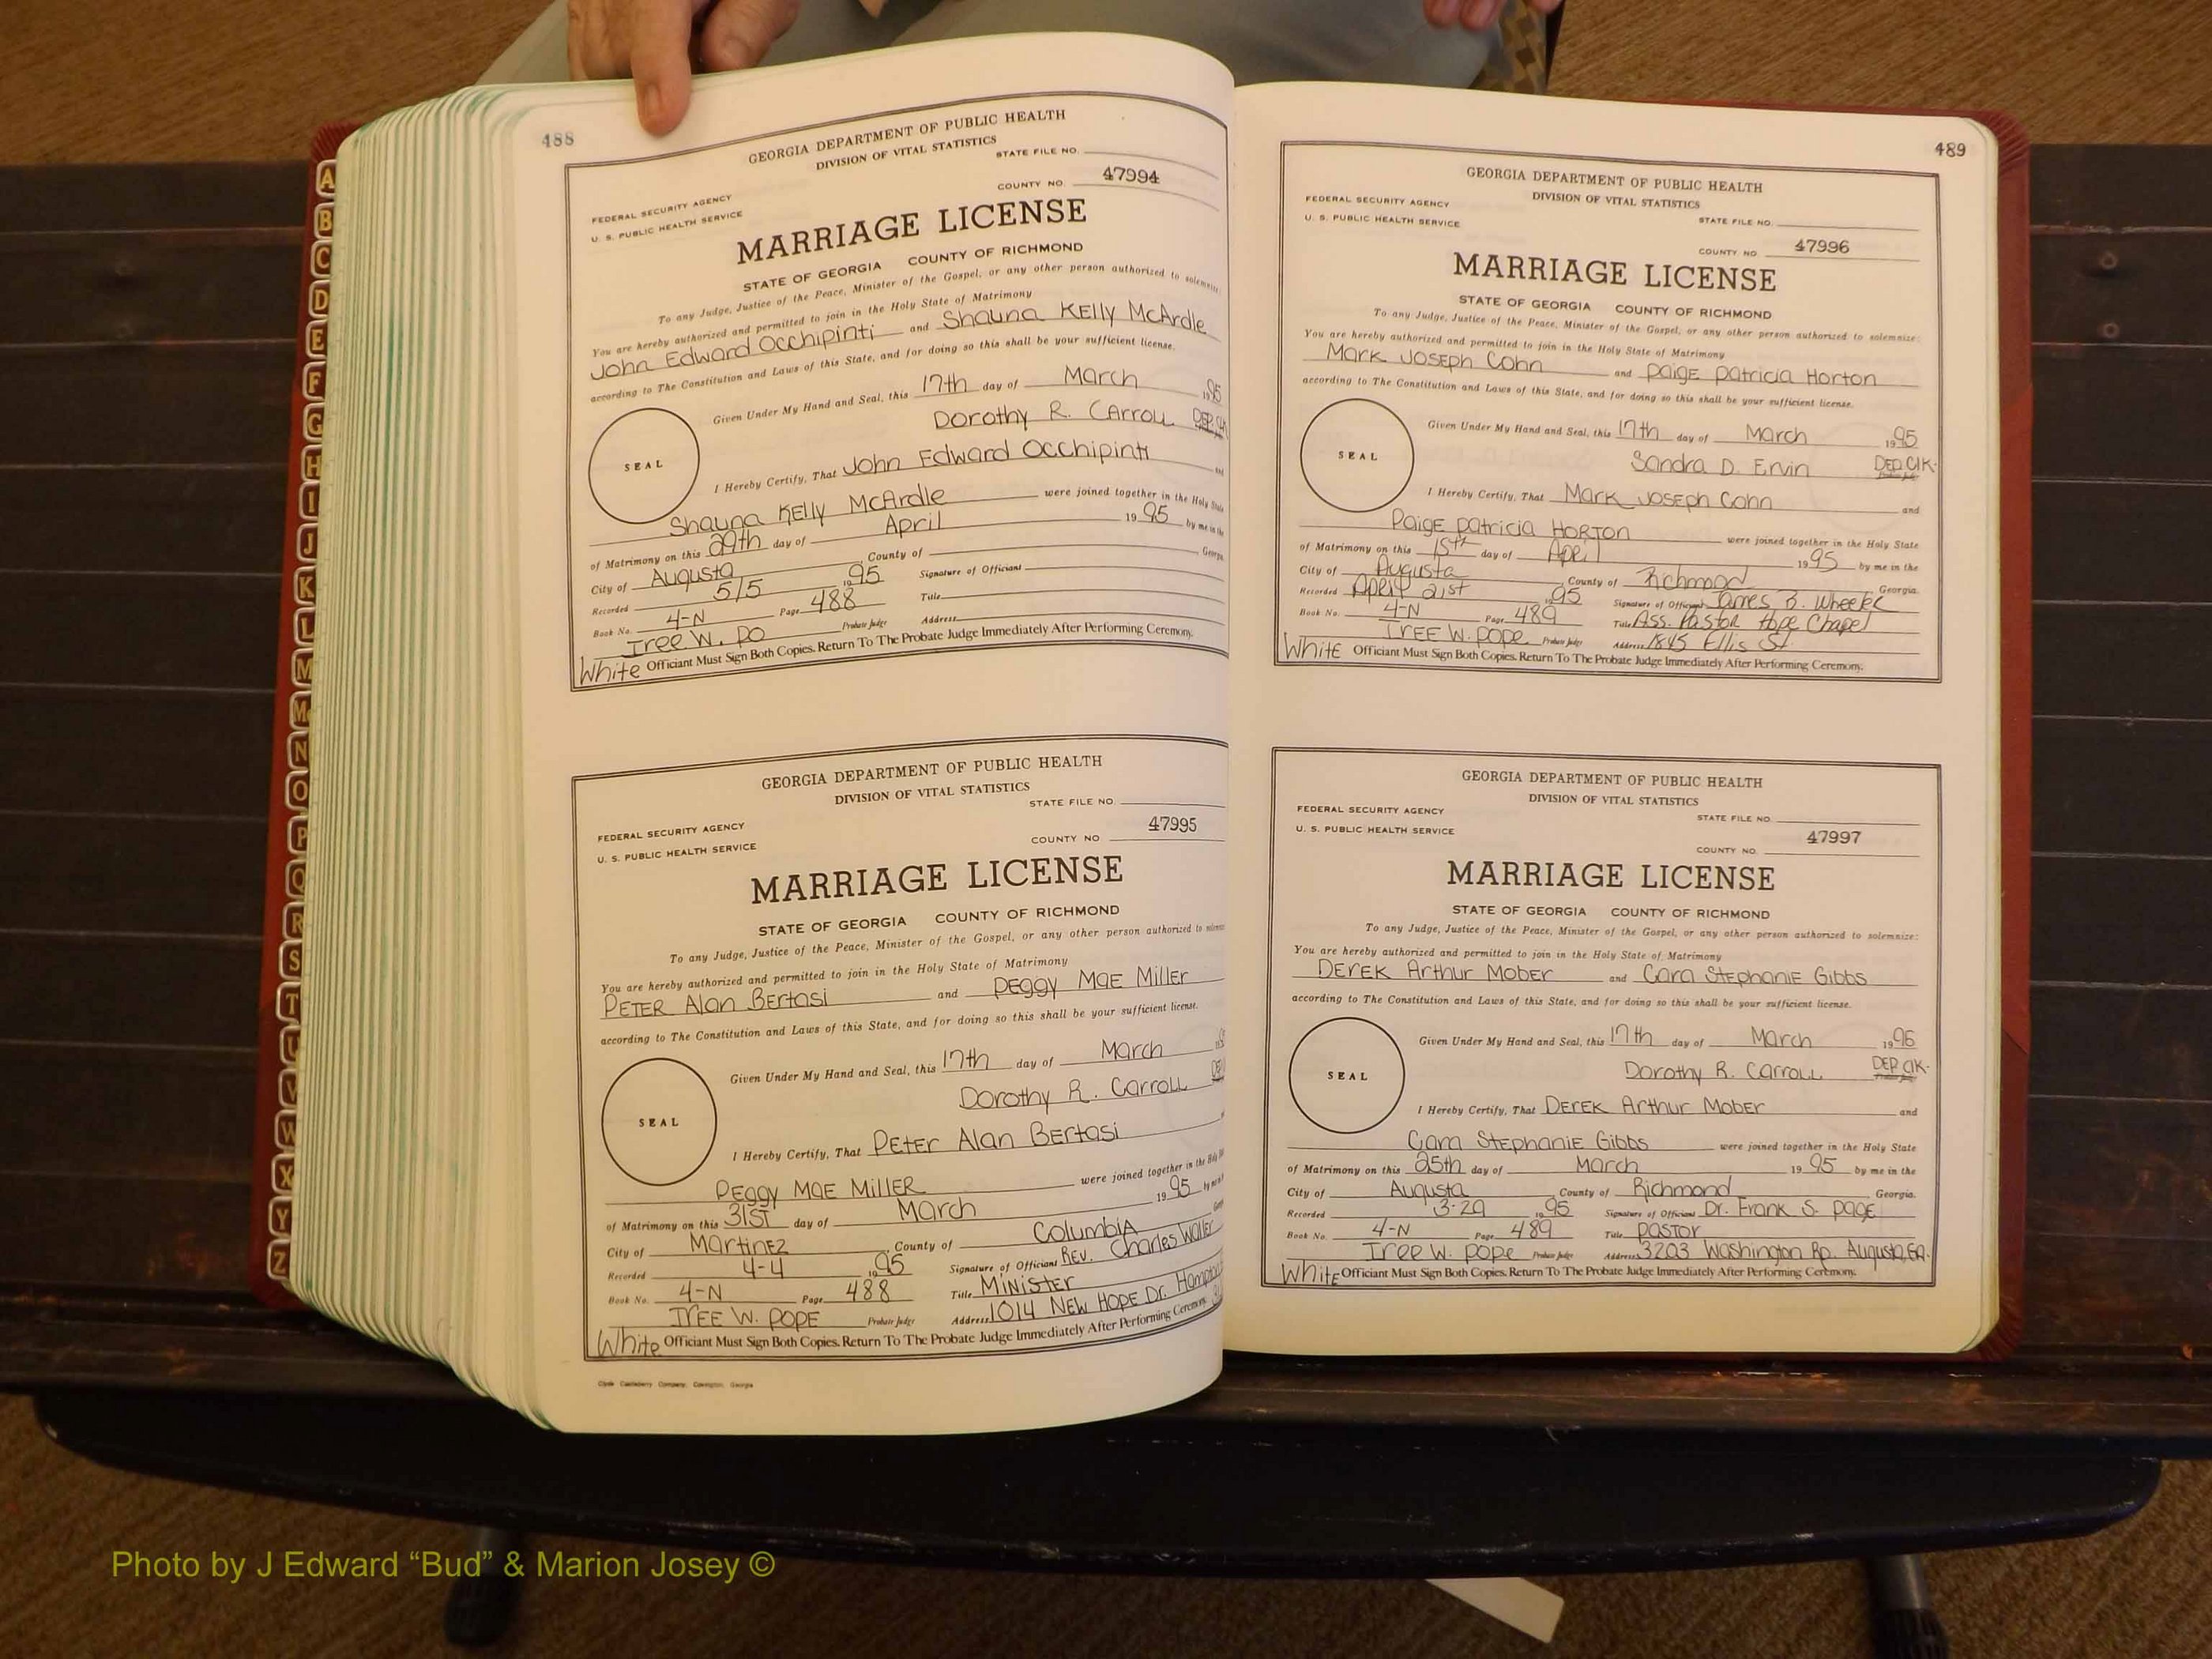 A
B
C
D
E
F
G
H
I
J
K
L
M
Mc
N
O
P
Q
R
S
T
U
V
W
X
Y
Z
488
GEORGIA DEPARTMENT OF PUBLIC HEALTH
DIVISION OF VITAL STATISTICS
STATE FILE NO.
FEDERAL SECURITY AGENCY
U. S. PUBLIC HEALTH SERVICE
COUNTY NO. 47994
MARRIAGE LICENSE
STATE OF GEORGIA COUNTY OF RICHMOND
To any Judge, Justice of the Peace, Minister of the Gospel, or any other person authorized to solemnize:
You are hereby authorized and permitted to join in the Holy State of Matrimony
John Edward Occhipinti and Shauna Kelly McArdle
according to The Constitution and Laws of this State, and for doing so this shall be your sufficient license.
Given Under My Hand and Seal, this 17th day of March 1995
Dorothy R. Carroll Dep. Clk
SEAL
I Hereby Certify, That John Edward Occhipinti and
Shauna Kelly McArdle were joined together in the Holy State
of Matrimony on this 29th day of April 1995 by me in the
City of Augusta County of Georgia
Recorded 5/5 1995 Signature of Officiant
Book No. 4-N Page 488 Title
Iree W. Po Probate Judge Address
White Officiant Must Sign Both Copies. Return To The Probate Judge Immediately After Performing Ceremony.
GEORGIA DEPARTMENT OF PUBLIC HEALTH
DIVISION OF VITAL STATISTICS
STATE FILE NO.
FEDERAL SECURITY AGENCY
U. S. PUBLIC HEALTH SERVICE
COUNTY NO 47995
MARRIAGE LICENSE
STATE OF GEORGIA COUNTY OF RICHMOND
To any Judge, Justice of the Peace, Minister of the Gospel, or any other person authorized to
You are hereby authorized and permitted to join in the Holy State of Matrimony
Peter Alan Bertasi and Peggy Mae Miller
according to The Constitution and Laws of this State, and for doing so this shall be your sufficient license.
Given Under My Hand and Seal, this 17th day of March
Dorothy R. Carroll
SEAL
I Hereby Certify, That Peter Alan Bertasi
Peggy Mae Miller were joined together in the Holy
of Matrimony on this 31st day of March 1995 by me
City of Martinez County of Columbia
Recorded 4-4 1995 Signature of Officiant Rev. Charles Waller
Book No. 4-N Page 488 Title Minister
Iree W. Pope Probate Judge Address 1014 New Hope Dr.
White Officiant Must Sign Both Copies. Return To The Probate Judge Immediately After Performing Ceremony.
Clyde Castleberry Company, Covington, Georgia
489
GEORGIA DEPARTMENT OF PUBLIC HEALTH
DIVISION OF VITAL STATISTICS
FEDERAL SECURITY AGENCY
U. S. PUBLIC HEALTH SERVICE
STATE FILE NO.
COUNTY NO. 47996
MARRIAGE LICENSE
STATE OF GEORGIA COUNTY OF RICHMOND
To any Judge, Justice of the Peace, Minister of the Gospel, or any other person authorized to solemnize:
You are hereby authorized and permitted to join in the Holy State of Matrimony
Mark Joseph Cohn and Paige Patricia Horton
according to The Constitution and Laws of this State, and for doing so this shall be your sufficient license.
Given Under My Hand and Seal, this 17th day of March 1995
Sandra D. Ervin Dep Clk.
SEAL
I Hereby Certify, That Mark Joseph Cohn and
Paige Patricia Horton were joined together in the Holy State
of Matrimony on this 15th day of April 1995 by me in the
City of Augusta County of Richmond Georgia.
Recorded April 21st 1995 Signature of Officiant James B. Wheeler
Book No. 4-N Page 489 Title Ass. Pastor Hope Chapel
Iree W. Pope Probate Judge Address 1845 Ellis St.
White Officiant Must Sign Both Copies. Return To The Probate Judge Immediately After Performing Ceremony.
GEORGIA DEPARTMENT OF PUBLIC HEALTH
DIVISION OF VITAL STATISTICS
FEDERAL SECURITY AGENCY
U. S. PUBLIC HEALTH SERVICE
STATE FILE NO.
COUNTY NO. 47997
MARRIAGE LICENSE
STATE OF GEORGIA COUNTY OF RICHMOND
To any Judge, Justice of the Peace, Minister of the Gospel, or any other person authorized to solemnize:
You are hereby authorized and permitted to join in the Holy State of Matrimony
Derek Arthur Mober and Cara Stephanie Gibbs
according to The Constitution and Laws of this State, and for doing so this shall be your sufficient license.
Given Under My Hand and Seal, this 17th day of March 1995
Dorothy R. Carroll Dep. Clk.
SEAL
I Hereby Certify, That Derek Arthur Mober and
Cara Stephanie Gibbs were joined together in the Holy State
of Matrimony on this 25th day of March 1995 by me in the
City of Augusta County of Richmond Georgia.
Recorded 3-29 1995 Signature of Officiant Dr. Frank S. Page
Book No. 4-N Page 489 Title Pastor
Iree W. Pope Probate Judge Address 3203 Washington Rd. Augusta, Ga.
White Officiant Must Sign Both Copies. Return To The Probate Judge Immediately After Performing Ceremony.
Photo by J Edward “Bud” & Marion Josey ©